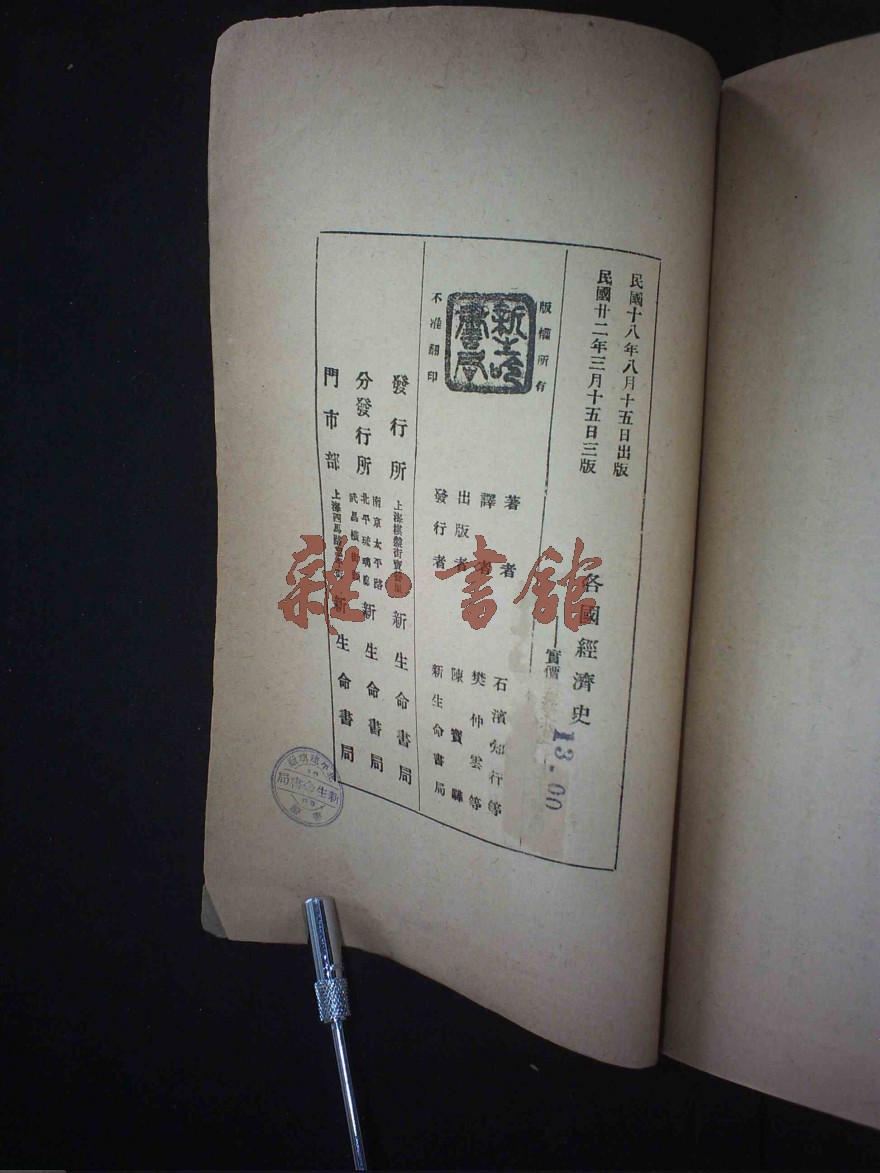 民國十八年八月十五日出版
民國廿二年三月十五日三版
各國經濟史
實價
13.00
版權所有
新生命書局
不准翻印
著者 石濱知行等
譯者 樊仲雲等
出版者 陳寶驊
發行者 新生命書局
發行所 上海棋盤街寶善里 新生命書局
分發行所 南京太平路 北平琉璃廠 武昌橫街頭 新生命書局
門市部 上海四馬路 新生命書局
新生命書局
雜·書館